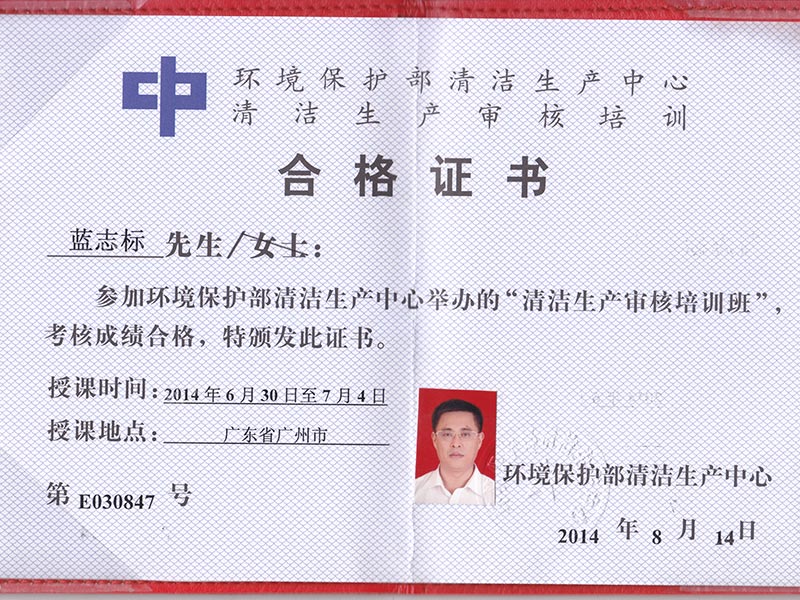 环境保护部清洁生产中心
清洁生产审核培训
合格证书
蓝志标 先生/女士：
参加环境保护部清洁生产中心举办的“清洁生产审核培训班”，
考核成绩合格，特颁发此证书。
授课时间：2014年6月30日至7月4日
授课地点：广东省广州市
第 E030847 号
环境保护部清洁生产中心
2014 年 8 月 14日